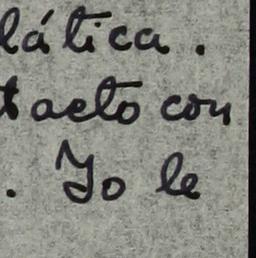 lática.
tacto con
. Yo le